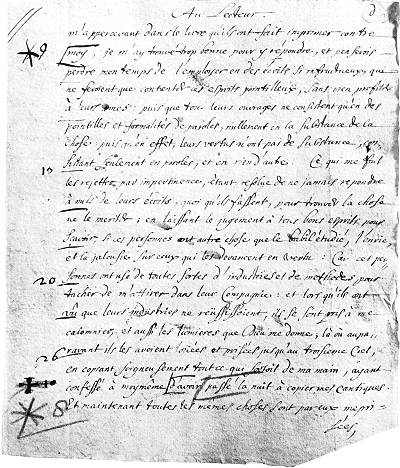 Au Lecteur.
m'appercevant dans le livre qu'ils ont fait imprimer contre
9 moy, je n'ay trouvé trop bonne pour y repondre, et penserois
perdre mon temps de l'employer en des écrits si infructueux, qui
ne seroient que contenter ces esprits pointilleux, sans rien profiter
à leurs ames: puis que tous leurs ouvrages ne consistent qu'en des
pointilles et formalités de paroles, nullement en la substance de la
chose: puis qu'en effet, leurs vertus n'ont pas de substance, con-
sistant seulement en paroles, et en rien d'autre. Ce qui me fait
les rejetter par impertinence, étant resolue de ne jamais repondre
à nuls de leurs écrits, quoi qu'ils fassent, pour trouver la chose
ne le meriter; en laissant le jugement à tous bons esprits pour
sçavoir, si ces personnes ont autre chose que le babil étudié, l'envie
et la jalousie sur ceux qui les devancent en vertu: Car ces per-
20 sonnes ont usé de toutes sortes d'industries et de methodes pour
tacher de m'attirer dans leur Compagnie: et lors qu'ils ont
vu que leurs industries ne reüssissoient, ils se sont pris à me
calomnier, et aussi les lumieres que Dieu me donne; là où aupa-
26 ravant ils les avoient loüées et prisées jusqu'au troisieme Ciel,
en copiant soigneusement tout ce qui sortoit de ma main, ayant
confessé à moymême d'avoir passé la nuit à copier mes Cantiques.
Et maintenant toutes les mêmes choses sont par eux mépri-
sées,